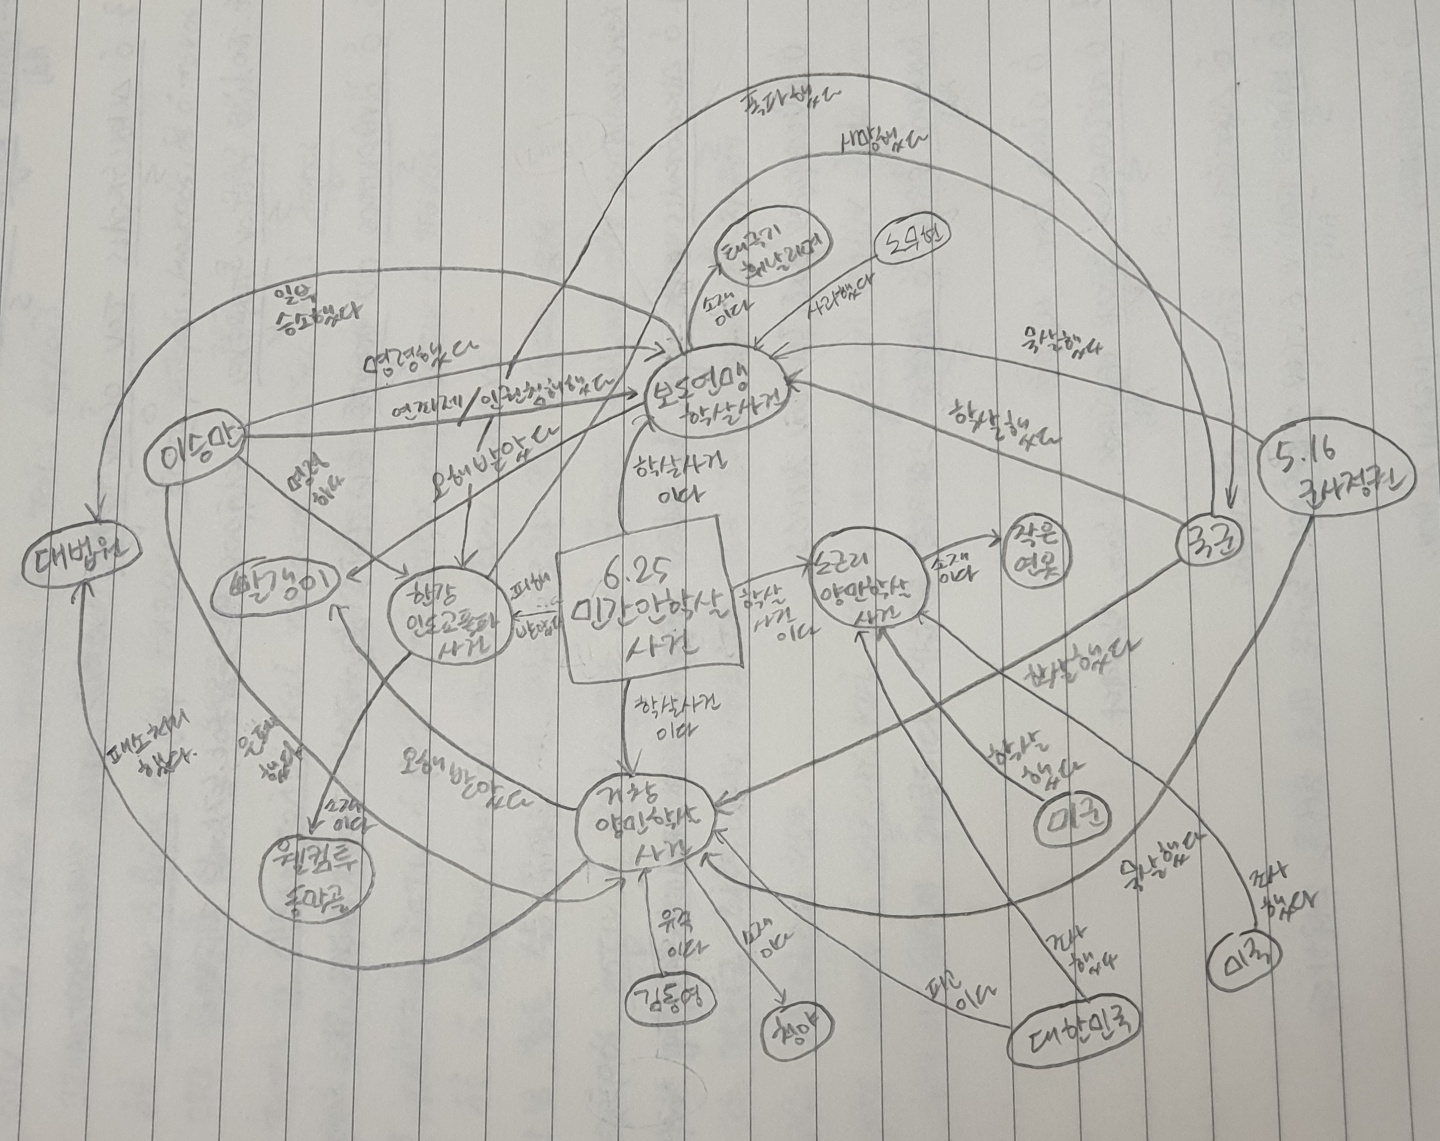 폭파했다
사망했다
태극기
휘날리며
노무현
소재
이다
사과했다
일부
승소했다
명령했다
묵살했다
연좌제/인권침해했다
보도연맹
학살사건
학살했다
이승만
5.16
군사정권
오해받았다
명령
하다
학살사건
이다
대법원
빨갱이
한강
인도교폭파
사건
피해
받았다
6.25
민간인학살
사건
학살
사건
이다
노근리
양민학살
사건
소재
이다
작은
연못
국군
학살했다
학살사건
이다
패소처리
했다.
은폐
했다
오해받았다
학살
했다
소재
이다
웰컴투
동막골
거창
양민학살
사건
미군
묵살했다
조사
했다
유족
이다
소재
이다
조사
했다
미국
김동영
청야
피고
이다
대한민국